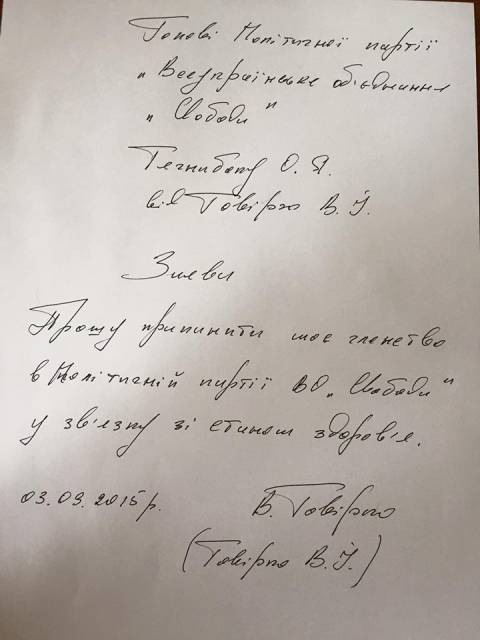 Голові Політичної партії
„Всеукраїнське об'єднання
„Свобода"
Тягнибоку О. Я.
від В. Й.
Заява
Прошу припинити моє членство
в Політичній партії ВО „Свобода"
у зв'язку зі станом здоров'я.
03.09.2015 р.
В.
( В. Й.)